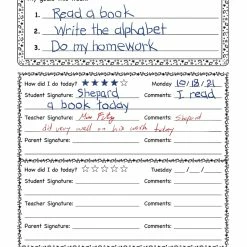 1. Read a book
2. Write the alphabet
3. Do my homework
How did I do today? Monday 10/18/21
Student Signature: Shepard Comments: I read
a book today
Teacher Signature: Comments: Shepard
did very well on his work today
Parent Signature: Comments:
How did I do today? Tuesday __/__/__
Student Signature: Comments:
Teacher Signature: Comments:
Parent Signature: Comments: